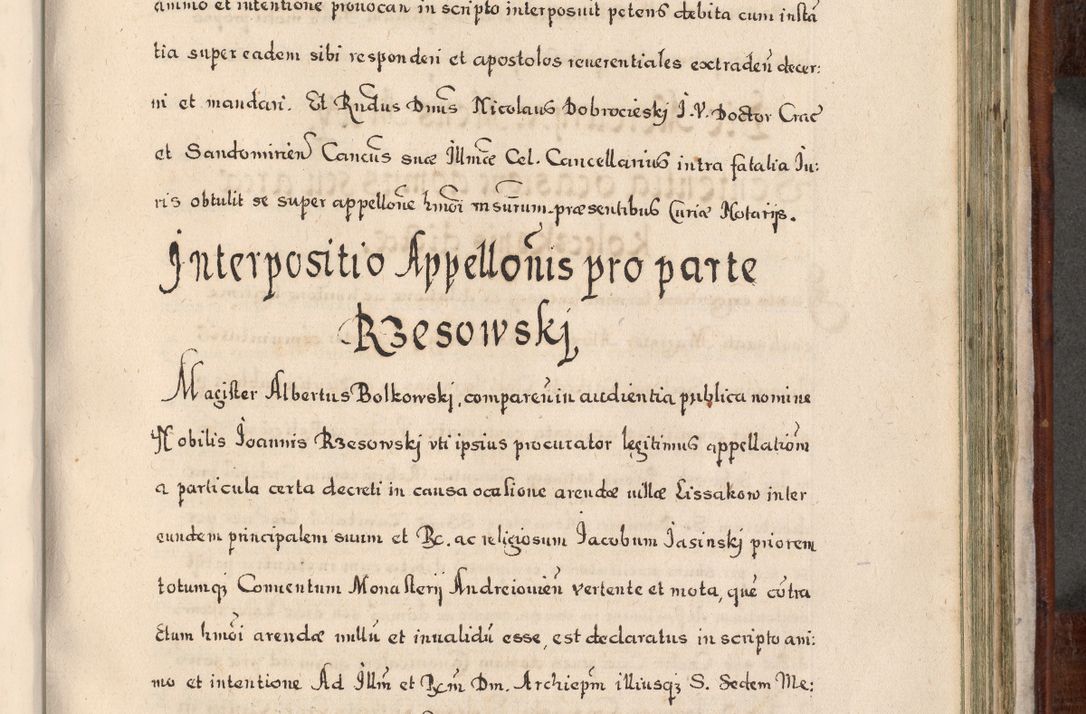 animo et intentione prouocan in scripto interposuit petens debita cum insta
tia super eadem sibi responderi et apostolos reuerentiales extraden decer:
ni et mandari. Et Rndus Dnus Nicolaus Dobrocieski J.V. Doctor Crac
et Sandomirien Cancus suæ Illmæ Cel. Cancellarius intra fatalia Ju:
ris obtulit se super appellone hmoi præsentibus Curiæ Notarijs.
Interpositio Appellonis pro parte
Rzesowskj
Magister Albertus Bolkowskj, comparen in audientia publica nomine
Nobilis Joannis Rzesowskj vti ipsius procurator legitimus appellationem
a particula certa decreti in causa ocasione arendæ uillæ Lissakow inter
eundem principalem suum et Rc. ac religiosum Jacobum Jasinskj priorem
totumqz Conuentum Monasterij Andreiouien vertente et mota, que contra
ctum hmoi arendæ nullu et inualidu esse, est declaratus in scripto ani:
mo et intentione Ad Illm et Rcm Dm. Archiepm illiusqz S. Sedem Me: